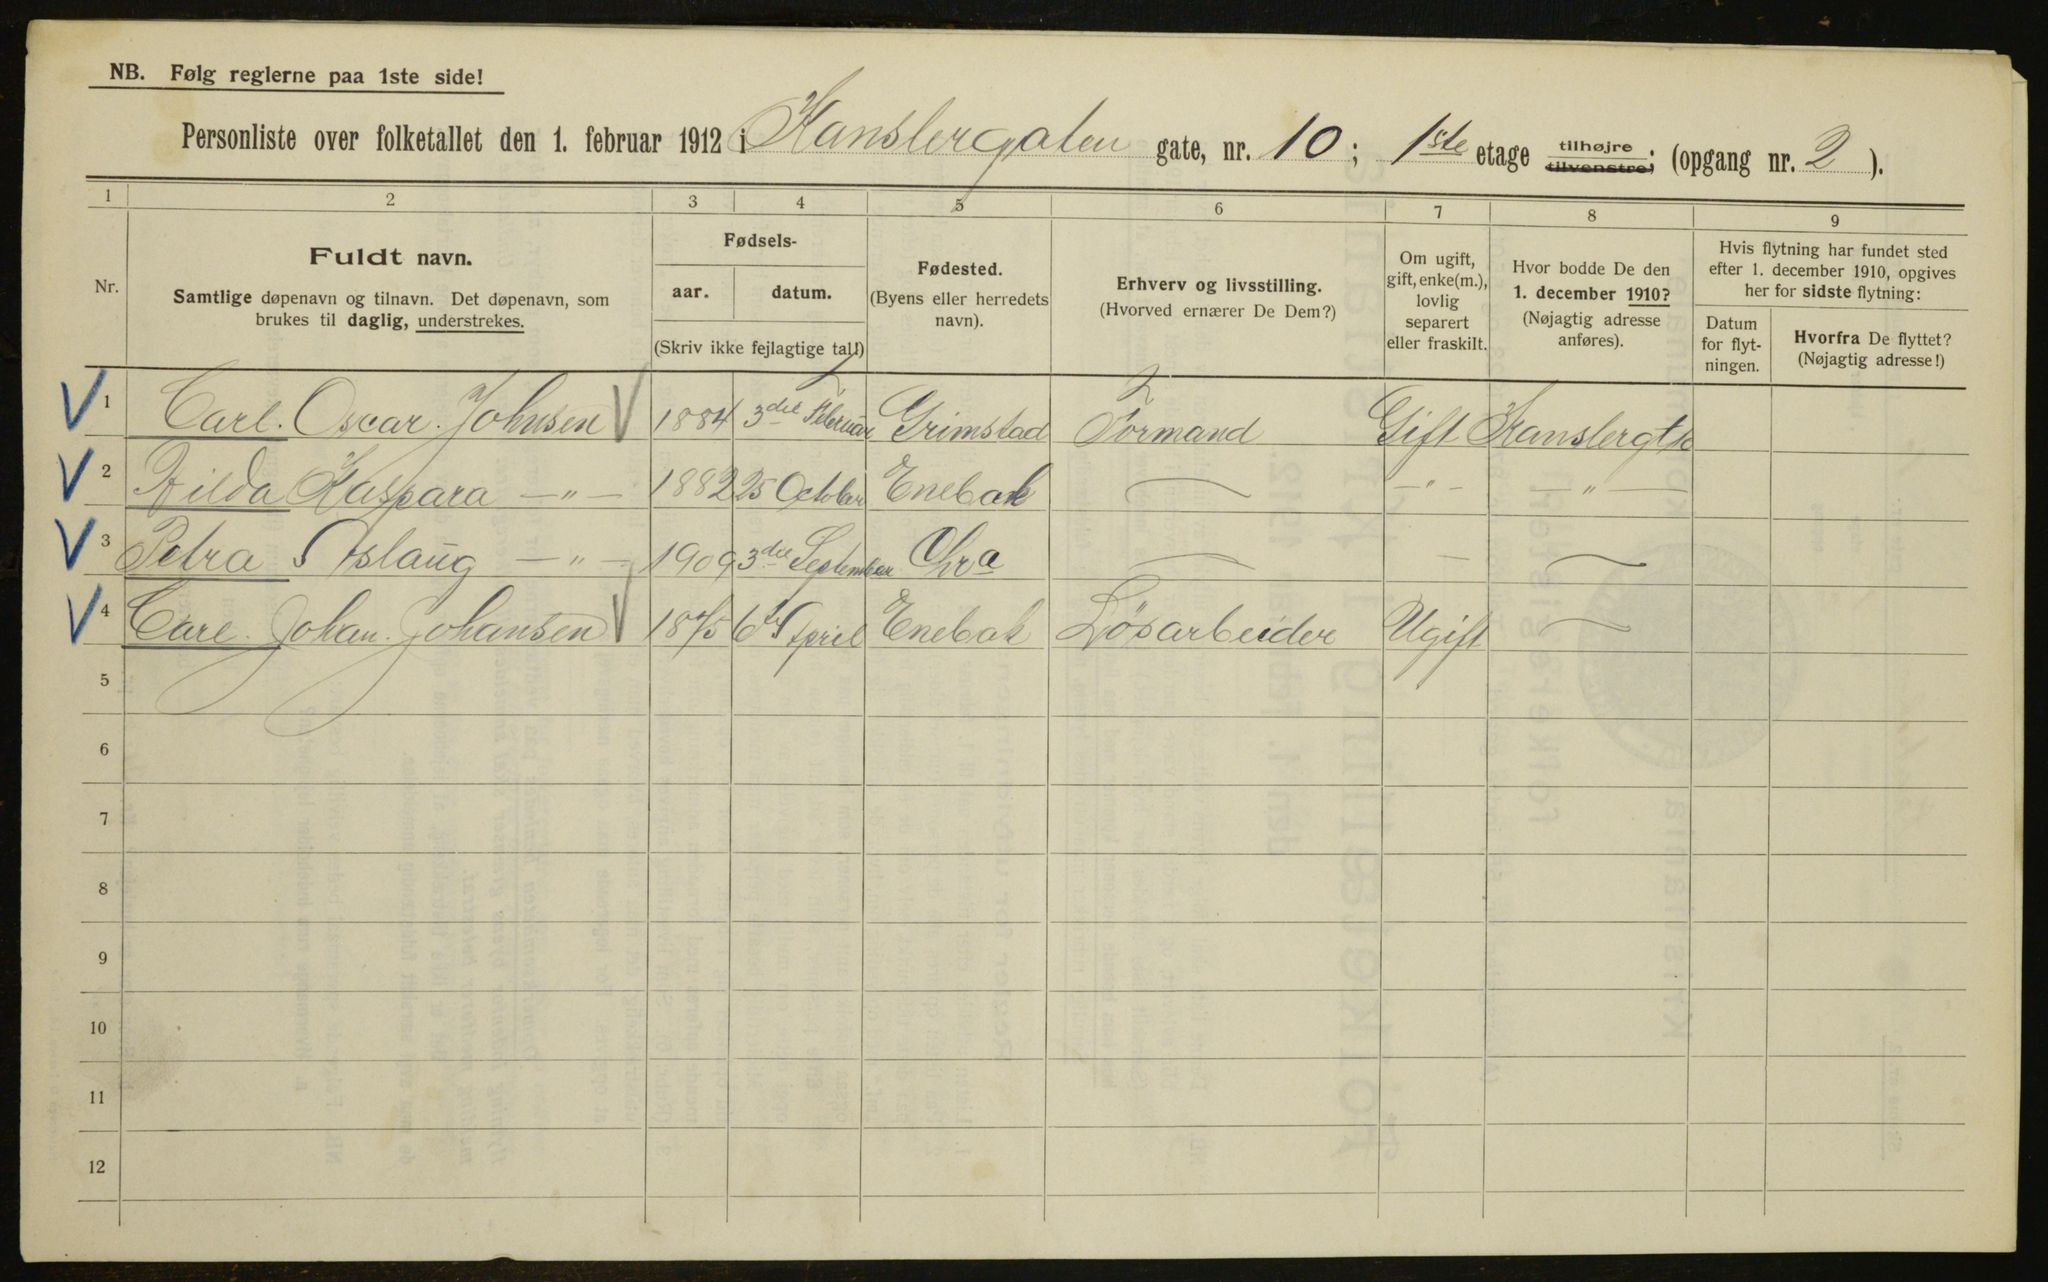 NB. Følg reglerne paa 1ste side!
Personliste over folketallet den 1. februar 1912 i Kanslergaten gate, nr. 10; 1ste etage tilhøjre tilvenstre; (opgang nr. 2 ).
1 2 3 4 5 6 7 8 9
Nr.
Fuldt navn.
Samtlige døpenavn og tilnavn. Det døpenavn, som
brukes til daglig, understrekes.
Fødsels-
aar. datum.
(Skriv ikke fejlagtige tal!)
Fødested.
(Byens eller herredets
navn).
Erhverv og livsstilling.
(Hvorved ernærer De Dem?)
Om ugift,
gift, enke(m.),
lovlig
separert
eller fraskilt.
Hvor bodde De den
1. december 1910?
(Nøjagtig adresse
anføres).
Hvis flytning har fundet sted
efter 1. december 1910, opgives
her for sidste flytning:
Datum
for flyt-
ningen.
Hvorfra De flyttet?
(Nøjagtig adresse!)
1 Carl. Oscar. Johnsen 1884 3die Februar Grimstad Formand Gift Kanslergt 10
2 Hilda Kaspara —"— 1882 25 October Enebak — —"— —"—
3 Petra Aslaug —"— 1909 3die September Chra — — —
4 Carl. Johan. Johansen 1875 6te April Enebak Løsarbeider Ugift —
5
6
7
8
9
10
11
12